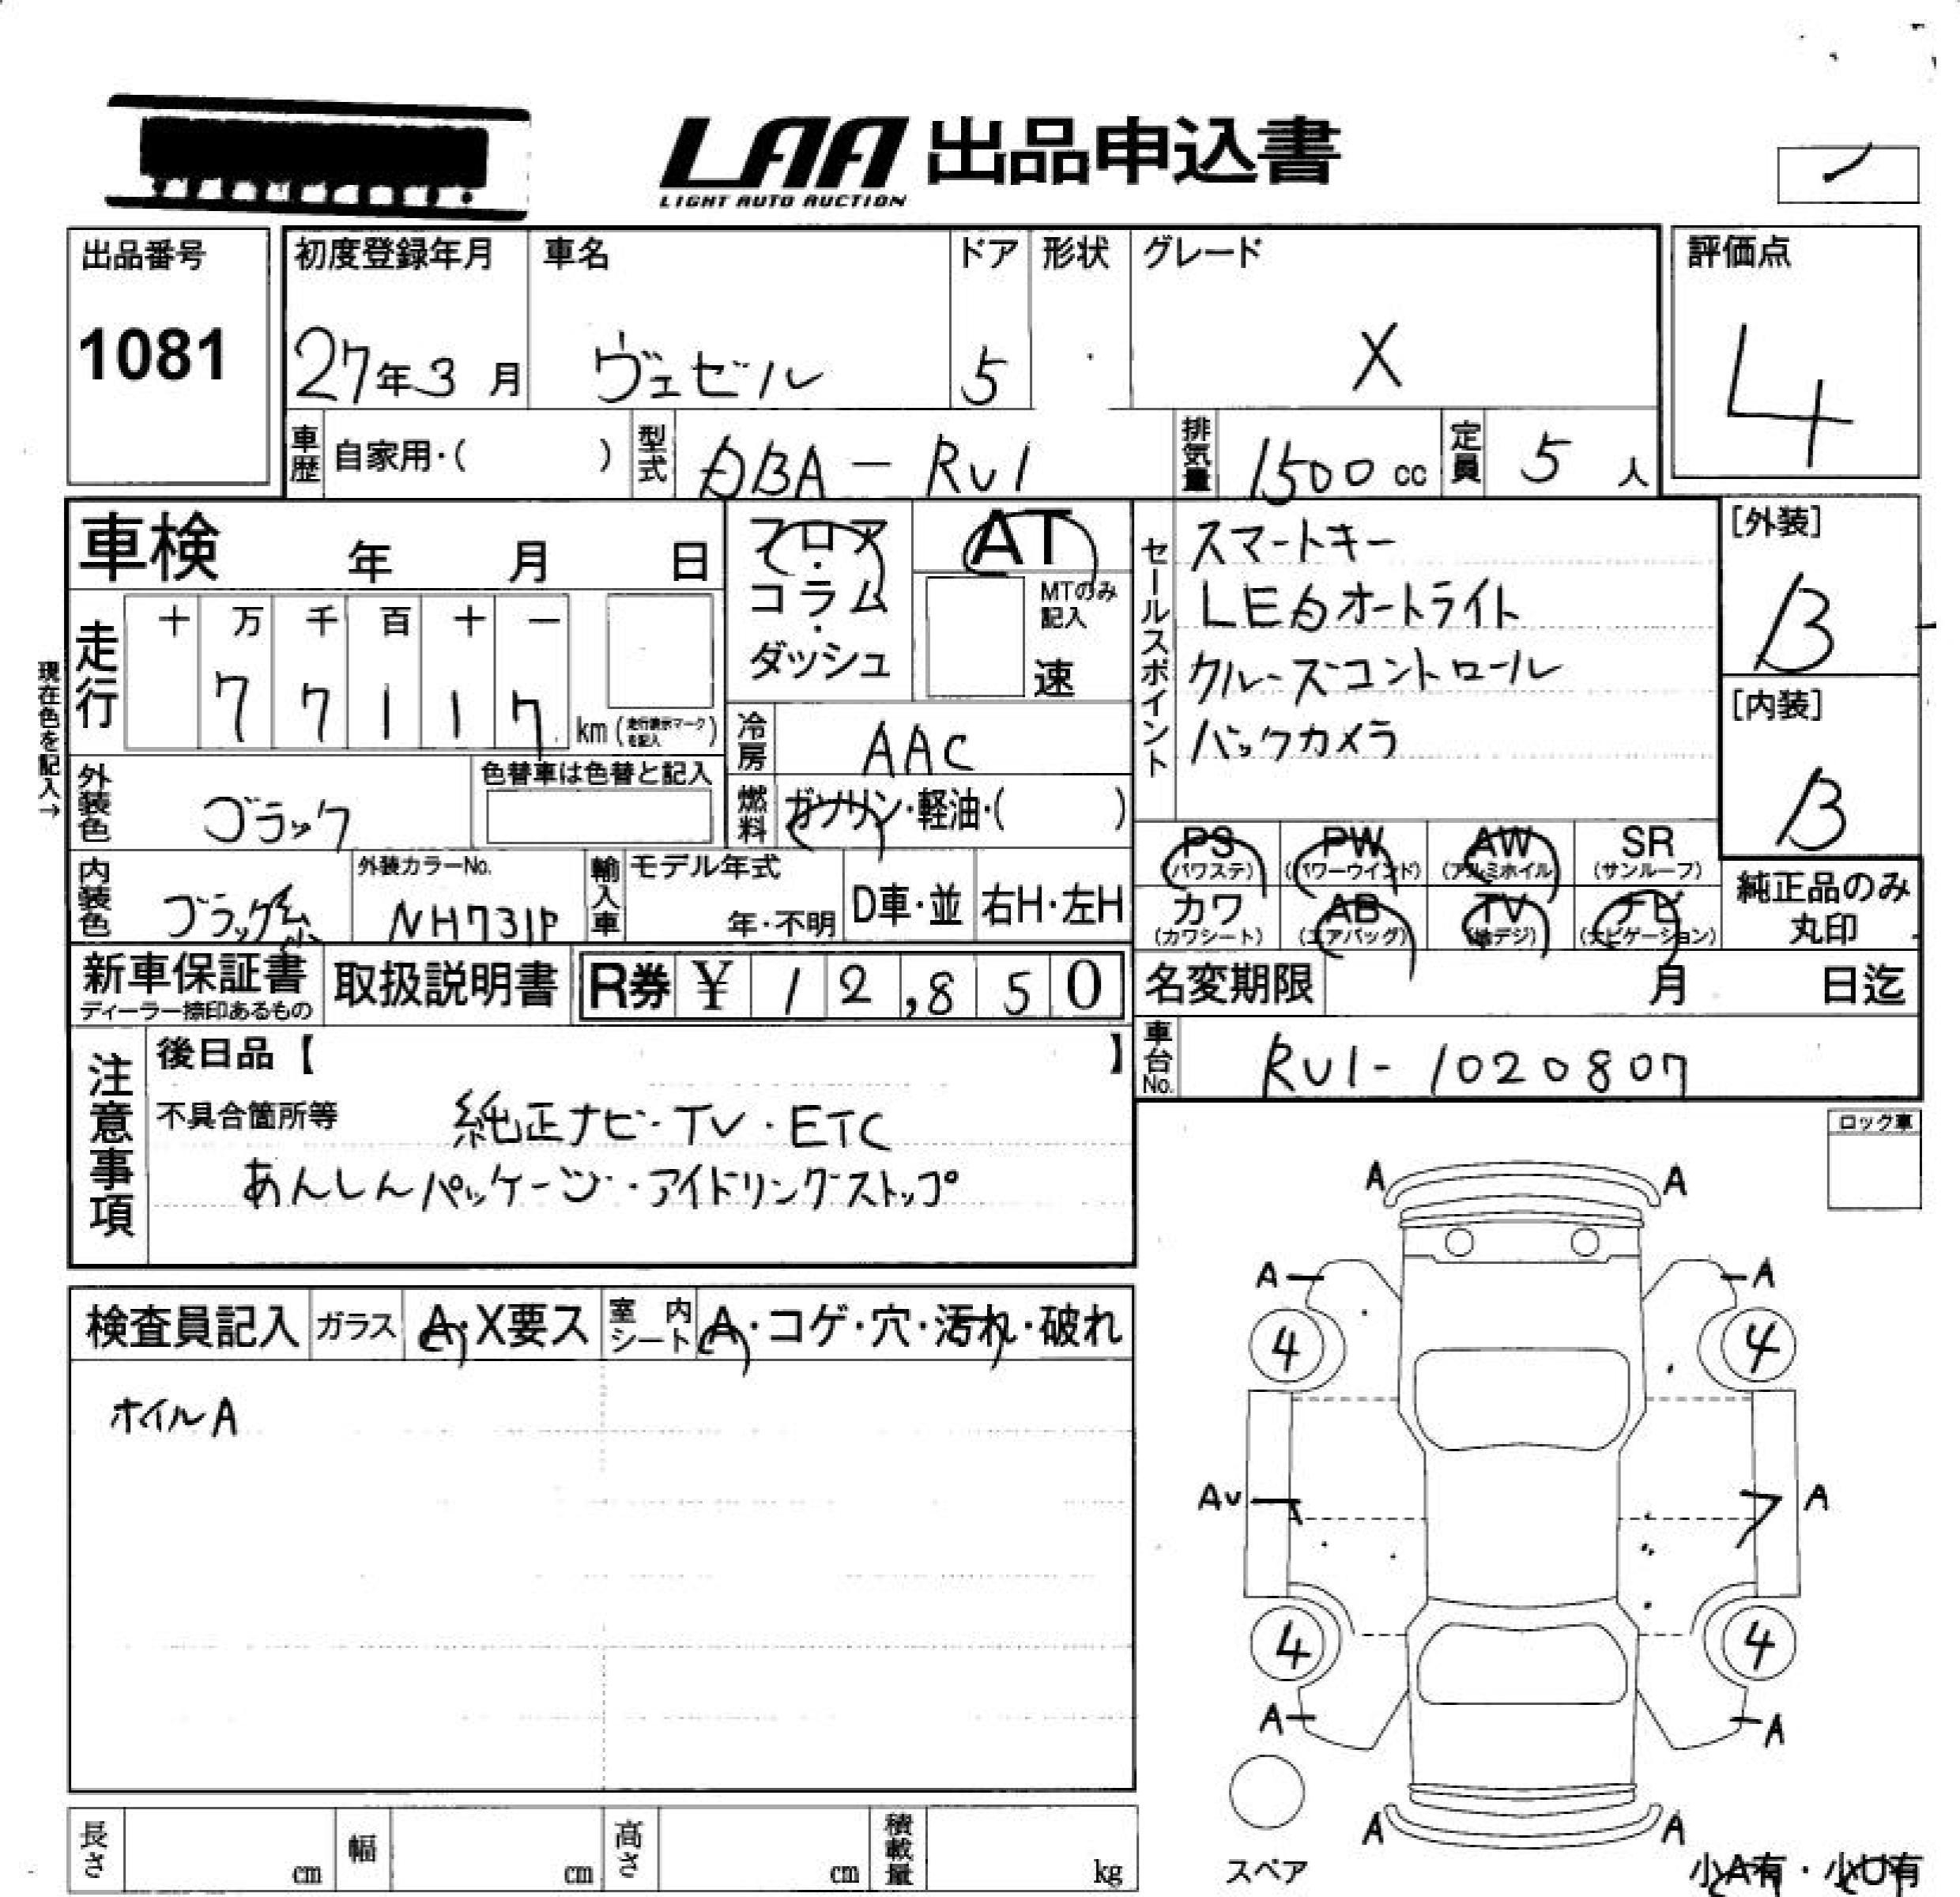 LAA 出品申込書
LIGHT AUTO AUCTION
出品番号
1081
初度登録年月 車名 ドア 形状 グレード
27年3月 ヴェゼル 5 X
評価点
4
車歴 自家用・( ) 型式 DBA-RU1 排気量 1500cc 定員 5人
車検 年 月 日
フロア・コラム・ダッシュ
AT
MTのみ記入
速
現在色を記入→
走行 十 万 千 百 十 一
7 7 1 1 7 km (走行表示マークを記入)
冷房 AAC
外装色 ブラック 色替車は色替と記入
燃料 ガソリン・軽油・( )
内装色 ブラック系
外装カラーNo.
NH731P
輸入車 モデル年式
年・不明 D車・並 右H・左H
セールスポイント
スマートキー
LEDオートライト
クルーズコントロール
バックカメラ
[外装]
B
[内装]
B
PS (パワステ) PW (パワーウインド) AW (アルミホイル) SR (サンルーフ)
カワ (カワシート) AB (エアバッグ) TV (地デジ) ナビ (ナビゲーション)
純正品のみ
丸印
新車保証書
ディーラー捺印あるもの
取扱説明書 R券 ¥ 12,850
名変期限 月 日迄
車台No. RU1-1020807
注意事項
後日品【 】
不具合箇所等 純正ナビ・TV・ETC
あんしんパッケージ・アイドリングストップ
ロック車
検査員記入 ガラス A・X要ス 室内シート A・コゲ・穴・汚れ・破れ
ホイルA
A A
A A
4 4
AU A
4 4
A A
A A
スペア
小A有・小U有
長さ cm 幅 cm 高さ cm 積載量 kg